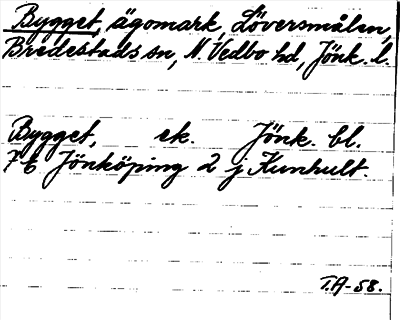 Bygget, ägomark, Löversmålen,
Bredestads sn, N. Vedbo hd, Jönk. l.
Bygget, ek. Jönk. bl.
7 b Jönköping 2 j Kunhult.
T.A-58.